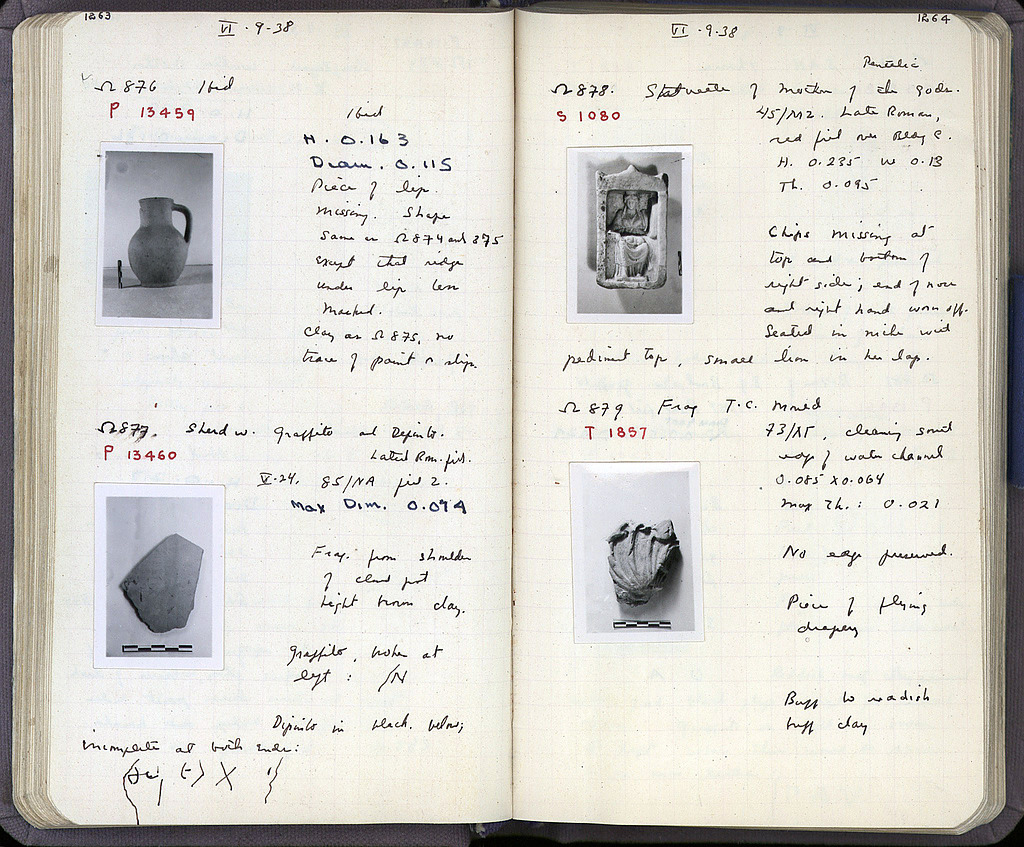 1263
VI · 9 · 38
Ω 876 Ibid
P 13459
Ibid
H. 0.163
Diam. 0.115
Piece of lip
missing. Shape
same as Ω 874 and 875
except that ridge
under lip less
marked.
Clay as Ω 875, no
trace of paint or slip.
Ω 877. Sherd w. graffito and Dipinto.
P 13460
Later Rom. fill.
V-24, 85/NA pit 2.
Max Dim. 0.094
Frag. from shoulder
of closed pot
Light brown clay.
Graffito, broken at
left: /N
Dipinto in black, below,
incomplete at both ends:
1264
VI · 9 · 38
Pentelic
Ω 878. Statuette of Mother of the gods.
S 1080
45/ Late Roman,
red fill over Bldg C.
H. 0.235 W 0.13
Th. 0.095
Chips missing at
top and bottom of
right side; end of nose
and right hand worn off.
Seated in niche with
pediment top, small lion in her lap.
Ω 879 Frag T.C. Mould
T 1857
73/ cleaning south
edge of water channel
0.085 x 0.064
Max Th.: 0.021
No edge preserved.
Piece of flying
drapery
Buff to reddish
buff clay